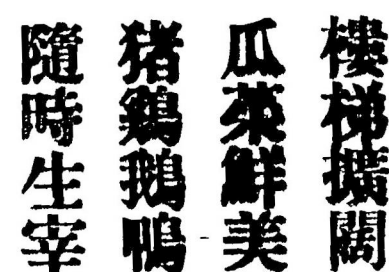 樓梯擴闊
瓜菜鮮美
猪鷄鵝鴨
隨時生宰